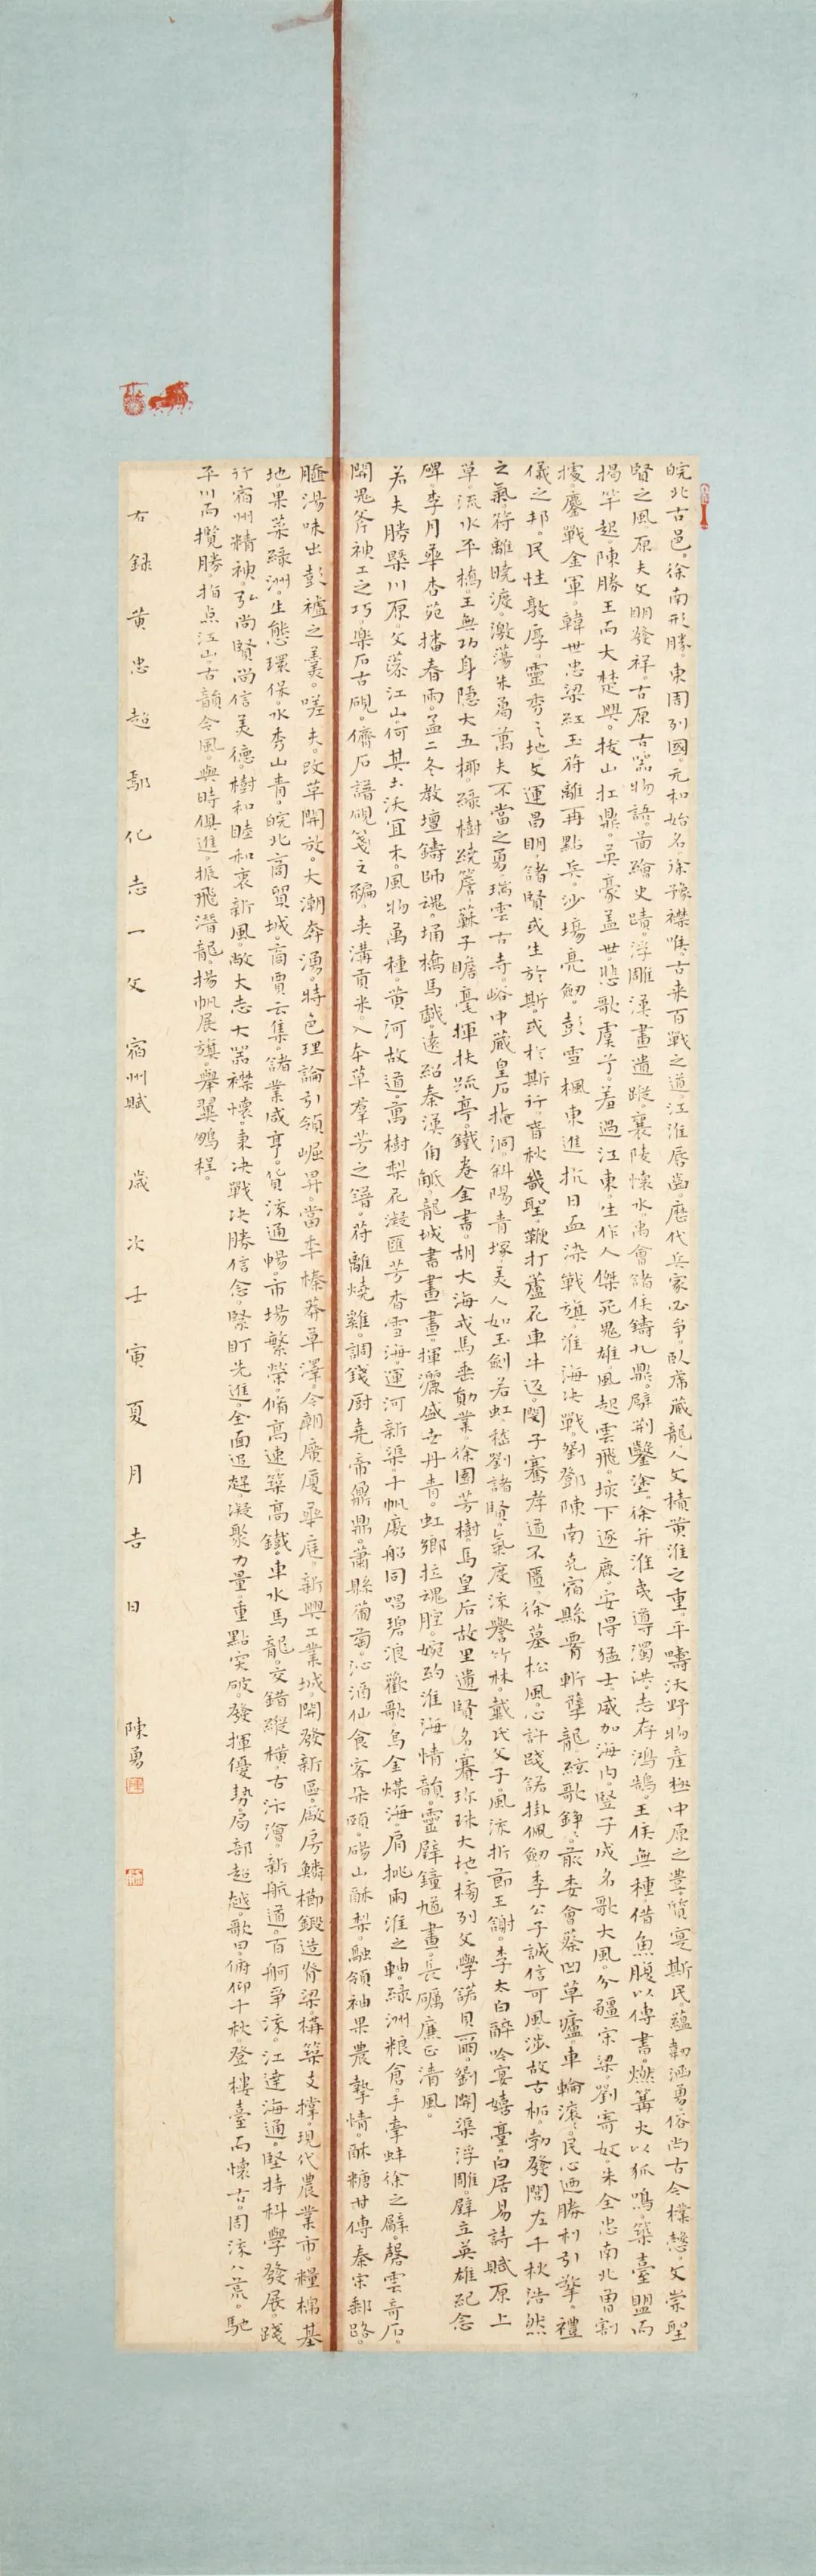 皖北古邑。徐南形勝。東周列國。元和始名。徐豫襟喉。古来百戰之道。江淮唇齒。歷代兵家必争。臥虎藏龍。人文積黄淮之重。平疇沃野。物產極中原之豐。質寔斯民。蘊韌涵勇。俗尚古今樸慤。文崇聖
賢之風。原夫文明發祥。古原古器物語。菑繪史蹟。浮雕漢畫遺蹤。襄陵懷水。禹會諸侯鑄九鼎。辟荆鑿塗。徐并淮夷導濁洪。志存鴻鵠。王侯無種。借魚腹以傳書。燃篝火以狐鳴。築臺盟而
揭竿起。陳勝王而大楚興。拔山扛鼎。英豪盖世。悲歌虞兮。羞過江東。生作人傑死鬼雄。風起雲飛。垓下逐鹿。安得猛士。威加海内。豎子成名歌大風。分疆宋梁。劉寄奴。朱全忠南北曾割
據。鏖戰金軍。韓世忠梁紅玉符離再點兵。沙場亮劍。彭雪楓東進抗日血染戰旗。淮海决戰。劉鄧陳南克宿縣。腰斬孽龍。弦歌錚錚。前委會蔡凹草廬。車輪滾滾。民心迺勝利引擎。禮
儀之邦。民性敦厚。靈秀之地。文運昌明。諸賢或生於斯。或於斯行。春秋幾聖。鞭打蘆花車牛返。閔子騫孝道不匱。徐墓松風。心許踐諾掛佩劍。季公子誠信可風。涉故古柘。勃發閭左千秋浩然
之氣。符離曉渡。激蕩朱勇萬夫不當之勇。瑞雲古寺。峪中藏皇后掩洞。斜陽青塚。美人如玉劍若虹。嵇劉諸賢。氣度流譽竹林。戴氏父子。風流折節王謝。李太白醉吟宴嬉臺。白居易詩賦原上
草。流水平橋。王無功身隱大五柳。綠樹繞簷。蘇子瞻毫揮扶疏亭。鐵卷全書。胡大海戎馬垂勛業。徐園芳樹。馬皇后故里遺賢名。賽珍珠大地。摘列文學諾貝爾。劉開渠浮雕。壁立英雄紀念
碑。李月華杏苑播春雨。孟二冬教壇鑄師魂。埇橋馬戲。遠紹秦漢角觝。龍城書畫畫。揮灑盛世丹青。虹鄉拉魂腔。婉約淮海情韻。靈壁鐘馗畫。長礪廉正清風。
若夫勝槩川原。文藻江山。何其土沃宜禾。風物萬種。黄河故道。萬樹梨花凝匯芳香雪海。運河新渠。千帆廢船同唱碧浪歡歌。烏金煤海。肩挑兩淮之軸。綠洲粮倉。手牽蚌徐之臂。磬雲奇石。
開鬼斧神工之巧。樂石古硯。儕石譜硯箋之編。夹溝貢米。入本草羣芳之譜。符離燒雞。調錢厨堯帝鼐鼎。蕭縣葡萄。沁酒仙食客朵頤。碭山酥梨。融領袖果農摯情。酥糖世傳秦宋郵路。
𦠿湯味出彭墟之羹。嗟夫。改革開放。大潮奔湧。特色理論引領崛昇。當年榛莽草澤。今朝廣厦華庭。新興工業城。開發新區。廠房鱗櫛鍛造脊梁。構築支撑。現代農業市。糧棉基
地。果菜綠洲。生態環保。水秀山青。皖北商貿城。商賈云集。諸業咸亨。货流通暢。市場繁榮。脩高速築高鐵。車水馬龍。交錯縱横。古汴濬。新航通。百舸爭流。江達海通。堅持科學發展。踐
行宿州精神。弘尚賢尚信美德。樹和睦和衷新風。敞大志大器襟懷。秉决戰决勝信念。緊盯先進。全面追趕。凝聚力量。重點突破。發揮優勢。局部超越。歌曰。俯仰千秋。登樓臺而懷古。周流八荒。馳
平川而攬勝。指点江山。古韻今風。與時俱進。振飛潛龍。揚帆展旗。舉翼鵬程。
右録黄忠超鄢化志一文宿州賦 歲次壬寅夏月吉日 陳勇